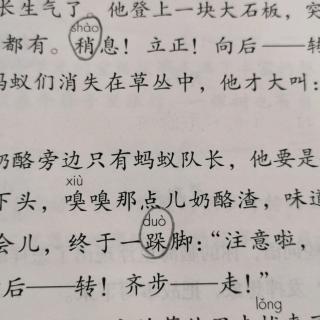 长生气了。他登上一块大石板，突
shào
都有。稍息！立正！向后——转
蚂蚁们消失在草丛中，他才大叫：
奶酪旁边只有蚂蚁队长，他要是
xiù
下头，嗅嗅那点儿奶酪渣，味道
duò
会儿，终于一跺脚：“注意啦，
后——转！齐步——走！”
lǒng